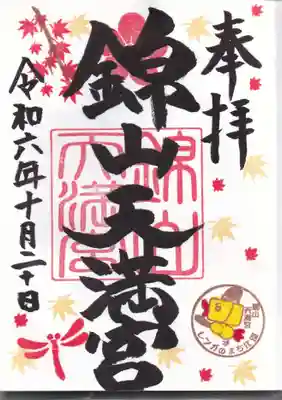 奉拝
錦山天満宮
令和六年十月二十日
錦山
天満宮
錦山
天満宮
レンガのまち江別